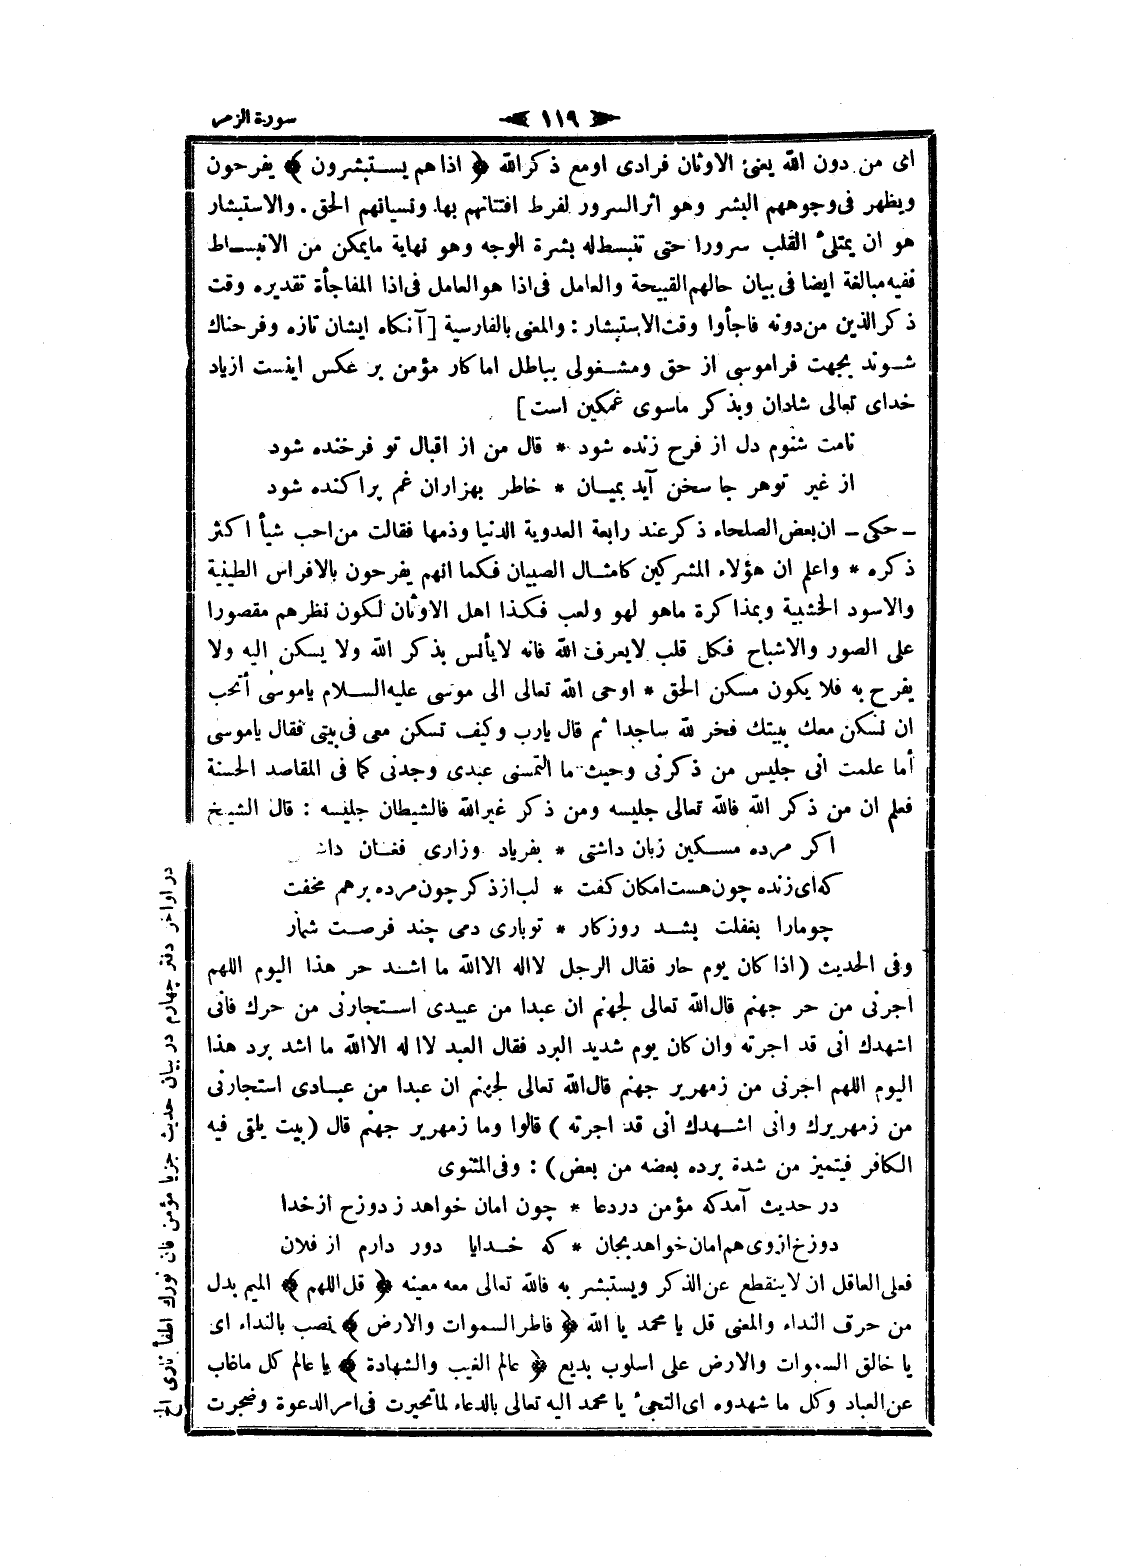 سورة الزمر
١١٩
اى من دون الله يعنى الاوثان فرادى اومع ذكرالله ﴿ اذاهم يستبشرون ﴾ يفرحون
ويظهر فى وجوههم البشر وهو اثر السرور لفرط افتتانهم بها ونسيانهم الحق . والاستبشار
هو ان يمتلئ القلب سرورا حتى تنبسط له بشرة الوجه وهو نهاية مايمكن من الانبساط
ففيه مبالغة ايضا فى بيان حالهم القبيحة والعامل فى اذا هو العامل فى اذا المفاجأة تقديره وقت
ذكر الذين من دونه فاجأوا وقت الاستبشار : والمعنى بالفارسية [ آنكاه ايشان تازه وفرحناك
شوند بجهت فراموسى از حق ومشغولى بباطل اما كار مؤمن بر عكس اينست ازياد
خداى تعالى شادان وبذكر ماسوى غمكين است ]
نامت شنوم دل از فرح زنده شود * قال من از اقبال تو فرخنده شود
از غير توهر جا سخن آيد بميان * خاطر بهزاران غم پراكنده شود
ـ حكى ـ ان بعض الصلحاء ذكر عند رابعة العدوية الدنيا وذمها فقالت من احب شيأ اكثر
ذكره * واعلم ان هؤلاء المشركين كامثال الصبيان فكما انهم يفرحون بالافراس الطينية
والاسود الخشبية وبمذاكرة ماهو لهو ولعب فكذا اهل الاوثان لكون نظرهم مقصورا
على الصور والاشباح فكل قلب لايعرف الله فانه لايأنس بذكر الله ولا يسكن اليه ولا
يفرح به فلا يكون مسكن الحق * اوحى الله تعالى الى موسى عليه السلام ياموسى أتحب
ان نسكن معك بيتك فخر لله ساجدا ثم قال يارب وكيف تسكن معى فى بيتى فقال ياموسى
أما علمت انى جليس من ذكرنى وحيث ما التمسنى عبدى وجدنى كما فى المقاصد الحسنة
فعلم ان من ذكر الله فالله تعالى جليسه ومن ذكر غيرالله فالشيطان جليسه : قال الشيخ
اكر مرده مسكين زبان داشتى * بفرياد وزارى فغان
كه اى زنده چون هست امكان كفت * لب از ذكر چون مرده برهم مخفت
چومارا بغفلت بشد روزكار * توبارى دمى چند فرصت شمار
وفى الحديث ( اذا كان يوم حار فقال الرجل لااله الاالله ما اشد حر هذا اليوم اللهم
اجرنى من حر جهنم قال الله تعالى لجهنم ان عبدا من عبيدى استجارنى من حرك فانى
اشهدك انى قد اجرته وان كان يوم شديد البرد فقال العبد لاا له الاالله ما اشد برد هذا
اليوم اللهم اجرنى من زمهرير جهنم قال الله تعالى لجهنم ان عبدا من عبادى استجارنى
من زمهريرك وانى اشهدك انى قد اجرته ) قالوا وما زمهرير جهنم قال ( بيت يلقى فيه
الكافر فيتميز من شدة برده بعضه من بعض ) : وفى المثنوى
در حديث آمدكه مؤمن دردعا * چون امان خواهد ز دوزخ ازخدا
دوزخ ازوى هم امان خواهد بجان * كه خدايا دور دارم از فلان
فعلى العاقل ان لا ينقطع عن الذكر ويستبشر به فالله تعالى معه معينه ﴿ قل اللهم ﴾ الميم بدل
من حرف النداء والمعنى قل يا محمد يا الله ﴿ فاطر السموات والارض ﴾ نصب بالنداء اى
يا خالق السموات والارض على اسلوب بديع ﴿ عالم الغيب والشهادة ﴾ يا عالم كل ماغاب
عن العباد وكل ما شهدوه اى التجئ يا محمد اليه تعالى بالدعاء لما تحيرت فى امر الدعوة وضجرت
در اواخر دفتر چهارم در بيان حديث جزيا مؤمن فان نورك اطفأ نارى الخ